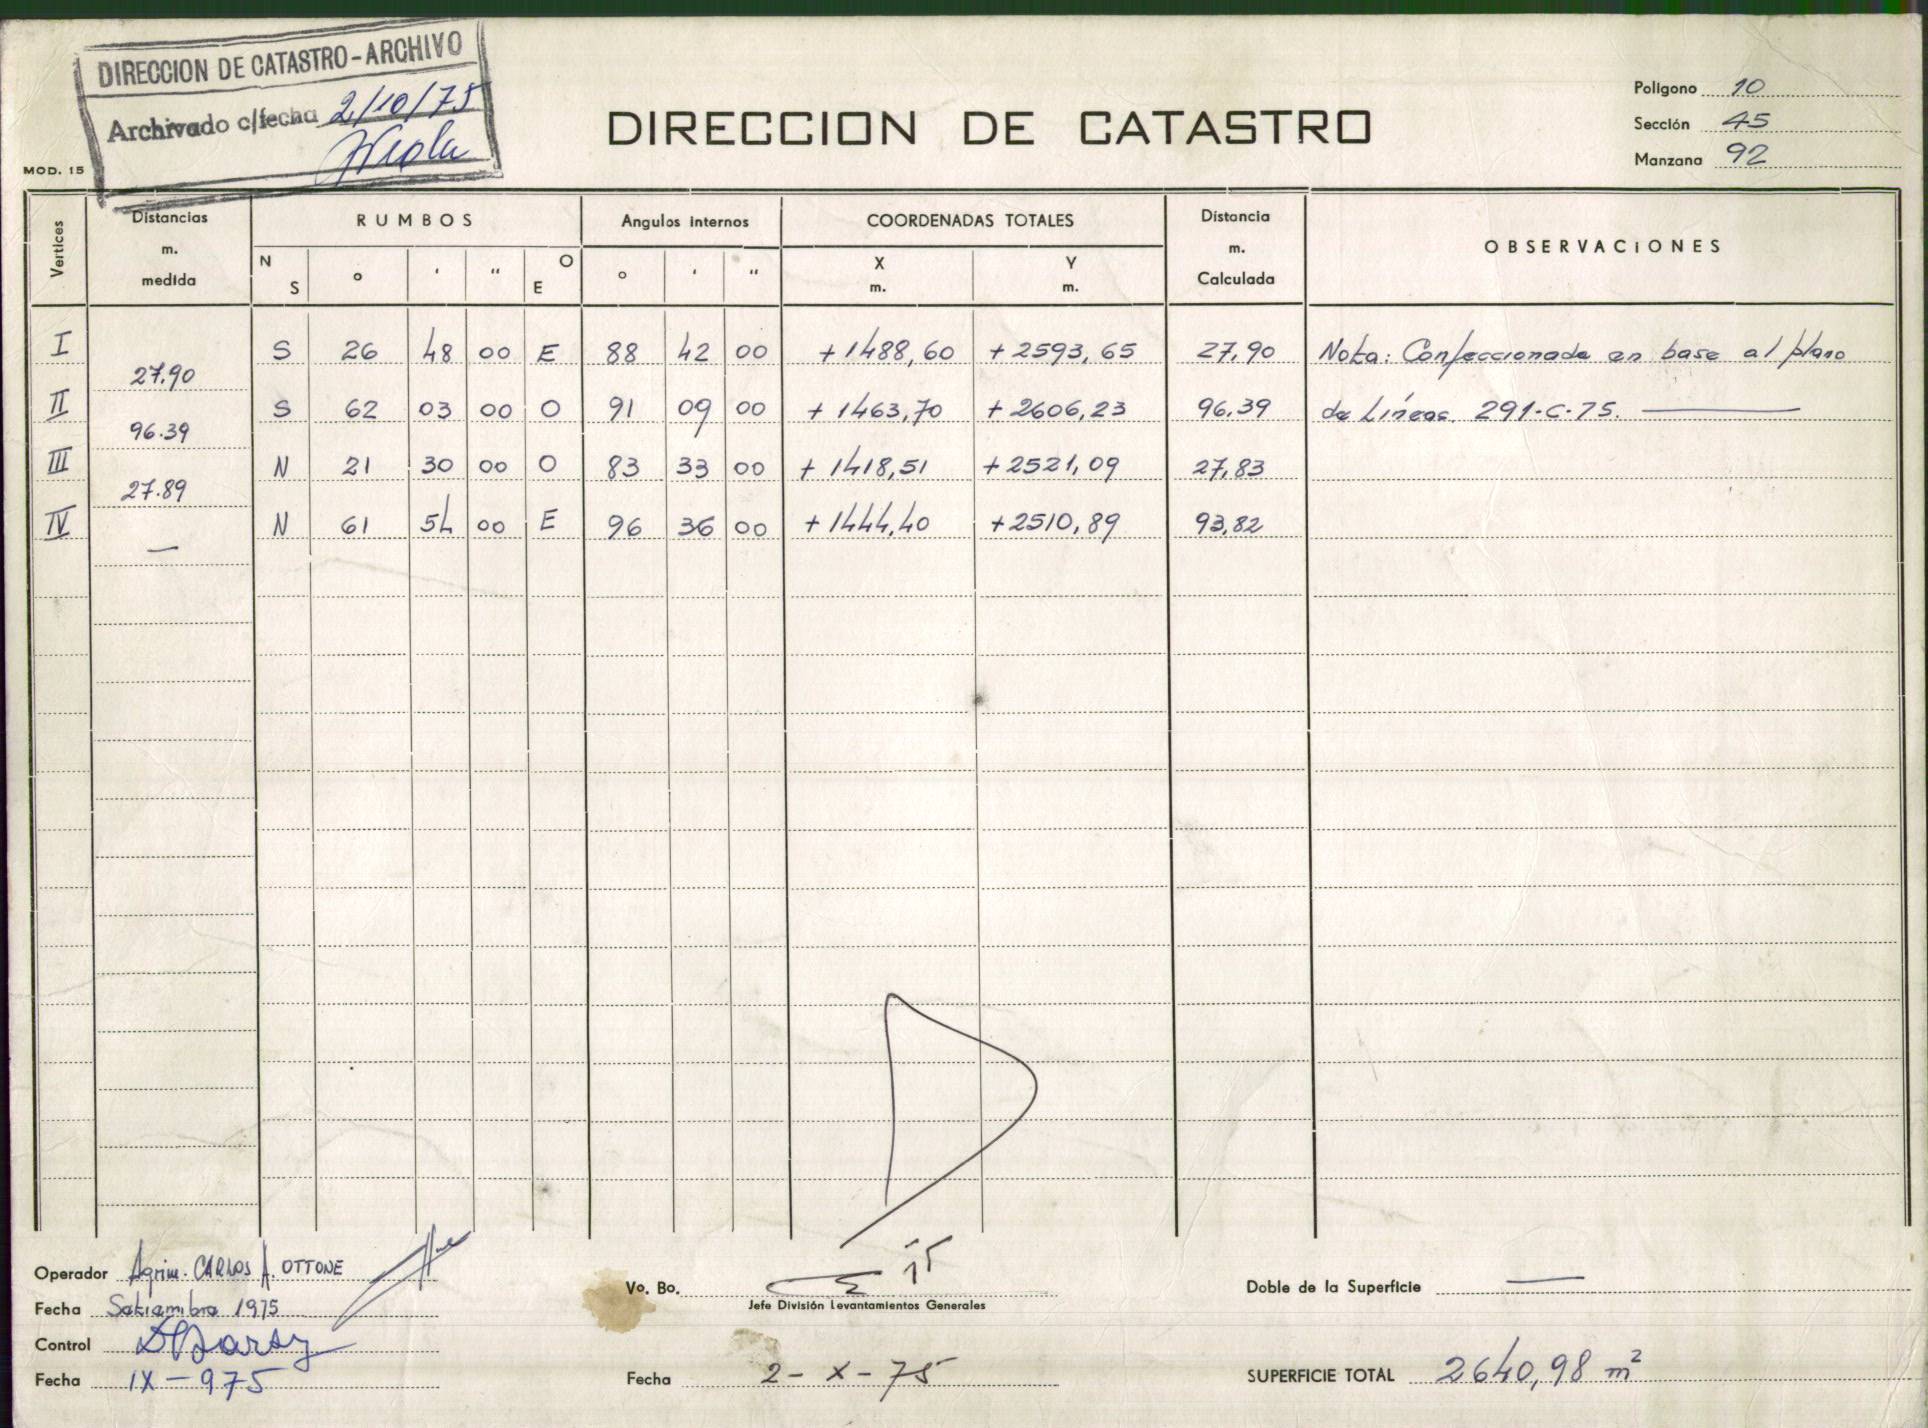 DIRECCION DE CATASTRO - ARCHIVO
Archivado c/fecha 2/10/75
MOD. 15
DIRECCION DE CATASTRO
Poligono 10
Sección 45
Manzana 92
Vertices Distancias m. medida RUMBOS Angulos internos COORDENADAS TOTALES Distancia m. Calculada OBSERVACIONES
N S ° ' " O E ° ' " X m. Y m.
I S 26 48 00 E 88 42 00 +1488,60 +2593,65 27,90 Nota: Confeccionada en base al plano
27.90
II S 62 03 00 O 91 09 00 +1463,70 +2606,23 96,39 de Líneas 291-C-75.
96.39
III N 21 30 00 O 83 33 00 +1418,51 +2521,09 27,83
27.89
IV N 61 54 00 E 96 36 00 +1444,40 +2510,89 93,82
—
Operador Agrim. CARLOS A. OTTONE
Fecha Setiembre 1975
Control
Fecha IX-975
Vo. Bo.
Jefe División Levantamientos Generales
Fecha 2-X-75
Doble de la Superficie —
SUPERFICIE TOTAL 2640,98 m²